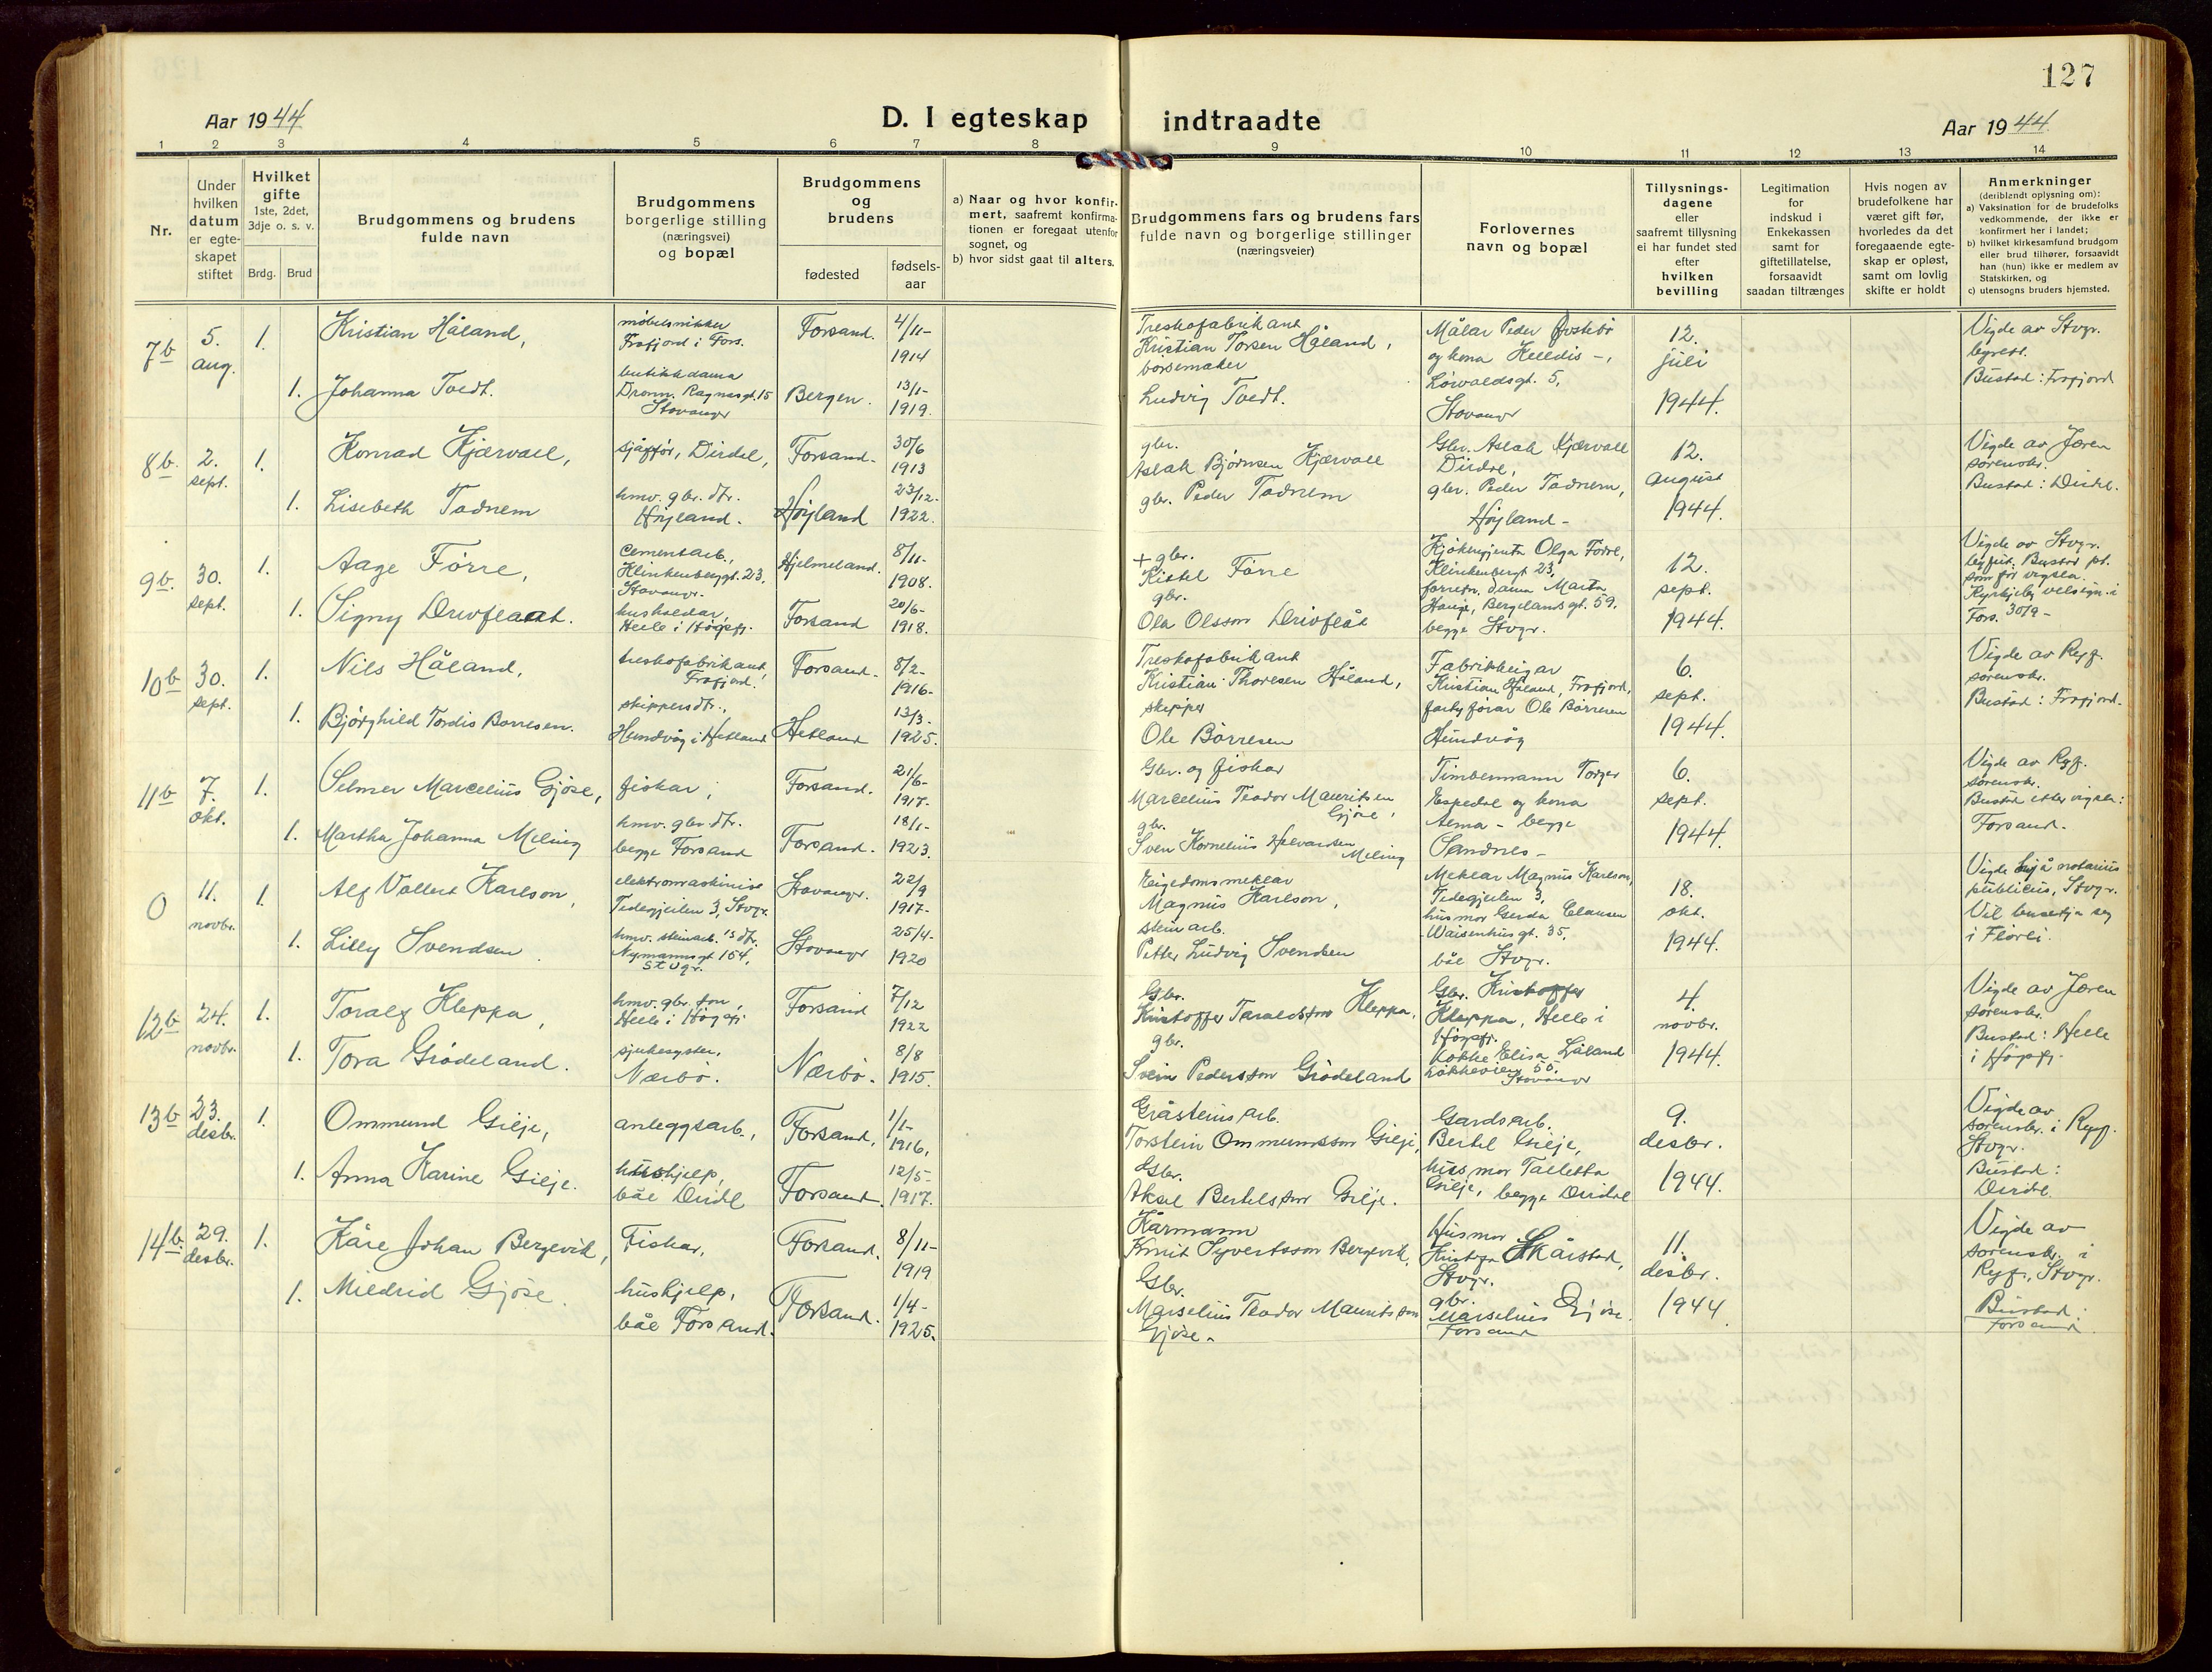 127
Aar 1944
D. I egteskap indtraadte
Aar 1944
1 2 3 4 5 6 7 8 9 10 11 12 13 14
Nr.
Under
hvilken
datum
er egte-
skapet
stiftet
Hvilket
gifte
1ste, 2det,
3dje o. s. v.
Brdg. Brud
Brudgommens og brudens
fulde navn
Brudgommens
borgerlige stilling
(næringsvei)
og bopæl
Brudgommens
og
brudens
fødested
fødsels-
aar
a) Naar og hvor konfir-
mert, saafremt konfirma-
tionen er foregaat utenfor
sognet, og
b) hvor sidst gaat til alters.
Brudgommens fars og brudens fars
fulde navn og borgerlige stillinger
(næringsveier)
Forlovernes
navn og bopæl
Tillysnings-
dagene
eller
saafremt tillysning
ei har fundet sted
efter
hvilken
bevilling
Legitimation
for
indskud i
Enkekassen
samt for
giftetillatelse,
forsaavidt
saadan tiltrænges
Hvis nogen av
brudefolkene har
været gift før,
hvorledes da det
foregaaende egte-
skap er opløst,
samt om lovlig
skifte er holdt
Anmerkninger
(deriblandt oplysning om):
a) Vaksination for de brudefolks
vedkommende, der ikke er
konfirmert her i landet;
b) hvilket kirkesamfund brudgom
eller brud tilhører, forsaavidt
han (hun) ikke er medlem av
Statskirken, og
c) utensogns bruders hjemsted.
7b
5.
aug.
1.
Kristian Håland,
møbelsnikker
Frafjord i Fors.
Forsand.
4/11-
1914
Treskofabrikant
Kristian Torsen Håland,
Målar Peder
og kona Helldis -,
Løwoldsgt. 5,
Stavanger
12.
juli
1944.
Vigde av Stvgr.
byrett.
Bustad: Frafjord
1.
Johanna Tvedt.
butikkdama
Dronn. Ragnasgt. 15
Stavanger
Bergen.
13/1-
1919.
børsemaker
Ludvig Tvedt.
8b.
2.
sept.
1.
Konrad Kjærvall,
sjåffør, Dirdal,
Forsand-
30/6
1913
gbr.
Aslak Bjørnsen Kjærvall
Gbr. Aslak Kjærvall
Dirdal,
gbr. Peder Tadnem,
Høyland-
12.
august
1944.
Vigde av Jæren
sorenskr.
Bustad: Dirdl.
1.
Lisebeth Tadnem
hmv. gbr. dtr.
Høyland.
Høyland
23/12-
1922.
gbr. Peder Tadnem
9b.
30.
sept.
1.
Aage Førre,
Cementarb.,
Klinkenberggt. 23,
Stavanger.
Hjelmeland.
8/11-
1908.
+ gbr.
Kittel Førre
Kjøkengjenta Olga Førre,
Klinkenbergt 23,
forretn. dama Marta
Hauge, Bergelandsgt. 59.
begge Stvgr.
12.
sept.
1944.
Vigde av Stvgr.
byfut. Bustad pt.
som før vigsla.
Kyrkjeleg velsign. i
Fors. 30/9-
1.
Signy Drivflaat.
husholdar,
Helle i Høgsfj.
Forsand
20/6-
1918.
gbr.
Ola Olsson Drivflåt
10b
30.
sept.
1.
Nils Håland,
treskofabrikant,
Frafjord.
Forsand-
8/2-
1916-
Treskofabrikant
Kristian Thoresen Håland,
Fabrikkeigar
Kristian Håland, Frafjord,
førar Ole Børresen
Hundvåg
6.
sept.
1944.
Vigde av Ryf.
sorenskr.
Bustad: Frafjord-
1.
Bjørghild Tordis Børresen.
skippersdtr.,
Hundvåg i Hetland
Hetland
13/3-
1925.
skipper
Ole Børresen
11b
7.
okt.
1.
Selmer Marcelius Gjøse,
fiskar;
Forsand.
21/6-
1917-
Gbr. og fiskar
Marcelius Teodor Mauritsen
Gjøse,
Timbermann Torger
Espedal og kona
Alma - begge
Sandnes-
6.
sept.
1944.
Vigde av Ryf.
sorenskr.
Bustad etter vigsla:
Forsand-
1.
Martha Johanna Meling
hmv. gbr. dtr.
begge Forsand
Forsand-
18/1-
1923.
gbr.
Sven Kornelius Halvardsen
Meling
0
11.
novbr.
1.
Alf Vollert Karlson,
elektromaskinist
Tidegjeilen 3, Stvgr.
Stavanger.
22/9
1917-
Eigedomsmeklar
Magnus Karlson,
Meklar Magnus Karlson,
Tidegjeilen 3,
husmor Gerda Clausen
Waisenhusgt. 35,
båe Stvgr.
18.
okt.
1944.
Vigde hjå notarius
publicus, Stvgr.
Vil busetja seg
i Flørli.
1.
Lilly Svendsen.
hmv. steinarb.'s dtr.
Nymannsgt 164,
Stvgr.
Stavanger
25/4-
1920
steinarb.
Petter Ludvig Svendsen
12b
24.
novbr.
1.
Toralf Kleppa,
hmv. gbr. son,
Helle i Høgsfj.
Forsand
7/12
1922
Gbr.
Kristoffer Taraldsson Kleppa,
Gbr. Kristoffer
Kleppa, Helle i
Høgsfj.
kokke Elisa Ljåland
Løkkevein 55,
Stavanger
4.
novbr.
1944.
Vigde av Jæren
sorenskr.
Bustad: Helle
i Høgsfj.
1.
Tora Grødeland.
sjukesyster,
Nærbø.
Nærbø.
8/8
1915.
gbr.
Svein Pedersson Grødeland
13b
23.
desbr.
1.
Ommund Gilje,
anleggsarb.,
Forsand,
1/1-
1916,
Gråsteinsarb.
Torstein Ommundsson Gilje,
Gardsarb.
Bertel Gilje,
husmor Talletta
Gilje, begge Dirdal
9.
desbr.
1944.
Vigde av
sorenskr. i Ryf.
Stvgr.
Bustad:
Dirdl.
1.
Anna Karine Gilje.
hushjelp,
båe Dirdl
Forsand.
12/5-
1917.
Gbr.
Aksel Bertelsson Gilje.
14b
29.
desbr.
1.
Kåre Johan Bergevik,
Fiskar,
Forsand.
8/11-
1919
Kårmann
Knut Syvertsson Bergevik,
Husmor
Skårstad,
Stvgr.
gbr.
Marselius Gjøse.
Forsand
11.
desbr.
1944
Vigde av
sorenskr. i
Ryf., Stvgr.
Bustad:
Forsand.
1.
Mildrid Gjøse.
hushjelp,
båe Forsand.
Forsand.
1/4-
1925.
Gbr.
Marselius Teodor Mauritsson
Gjøse-